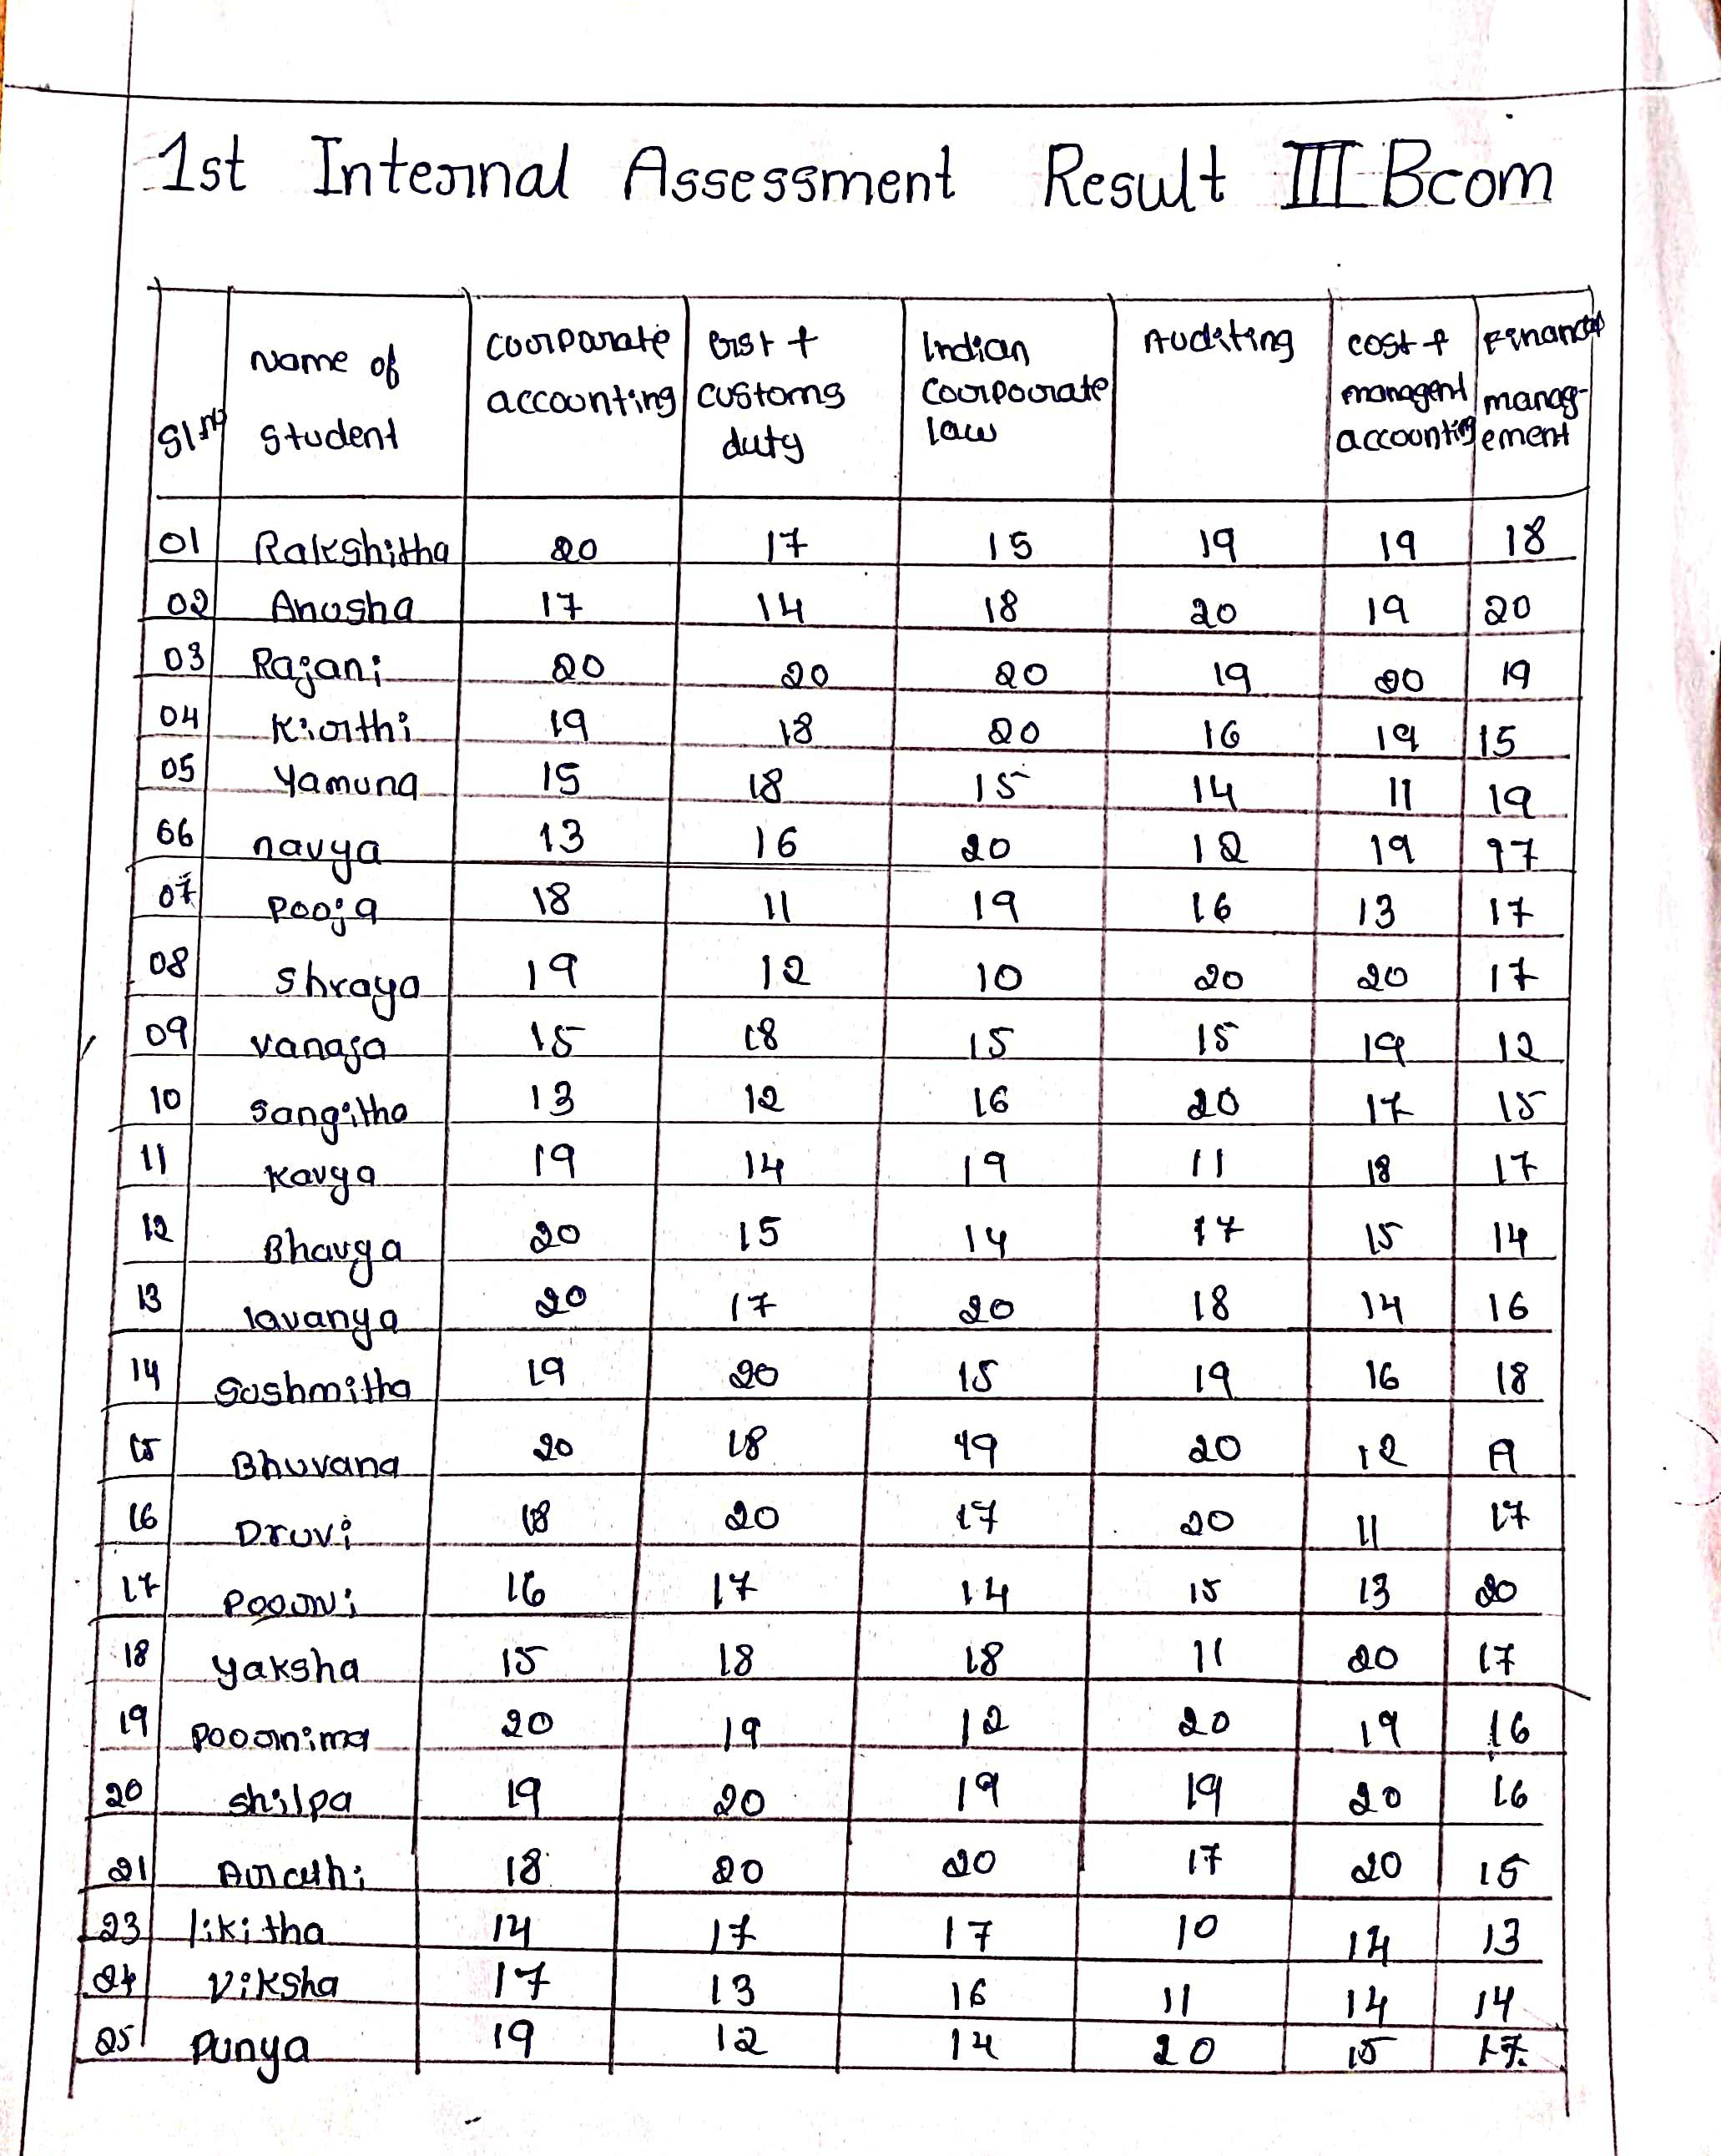 1st Internal Assessment Result III Bcom
Sl no Name of Student Coorporate accounting Gst + customs duty Indian Coorpoorate law Auditing cost + managent accounting Financial management
01 Rakshitha 20 17 15 19 19 18
02 Anusha 17 14 18 20 19 20
03 Rajani 20 20 20 19 20 19
04 Kirthi 19 18 20 16 19 15
05 Yamuna 15 18 15 14 11 19
06 navya 13 16 20 12 19 17
07 Pooja 18 11 19 16 13 17
08 Shraya 19 12 10 20 20 17
09 vanaja 15 18 15 15 19 12
10 Sangitha 13 12 16 20 17 15
11 Kavya 19 14 19 11 18 17
12 Bhavya 20 15 14 17 15 14
13 lavanya 20 17 20 18 14 16
14 Sushmitha 19 20 15 19 16 18
15 Bhuvana 20 18 19 20 12 A
16 Druvi 18 20 17 20 11 17
17 Poorvi 16 17 14 15 13 20
18 yaksha 15 18 18 11 20 17
19 Poornima 20 19 12 20 19 16
20 Shilpa 19 20 19 19 20 16
21 18 20 20 17 20 15
23 likitha 14 17 17 10 14 13
24 Viksha 17 13 16 11 14 14
25 Punya 19 12 14 20 15 17